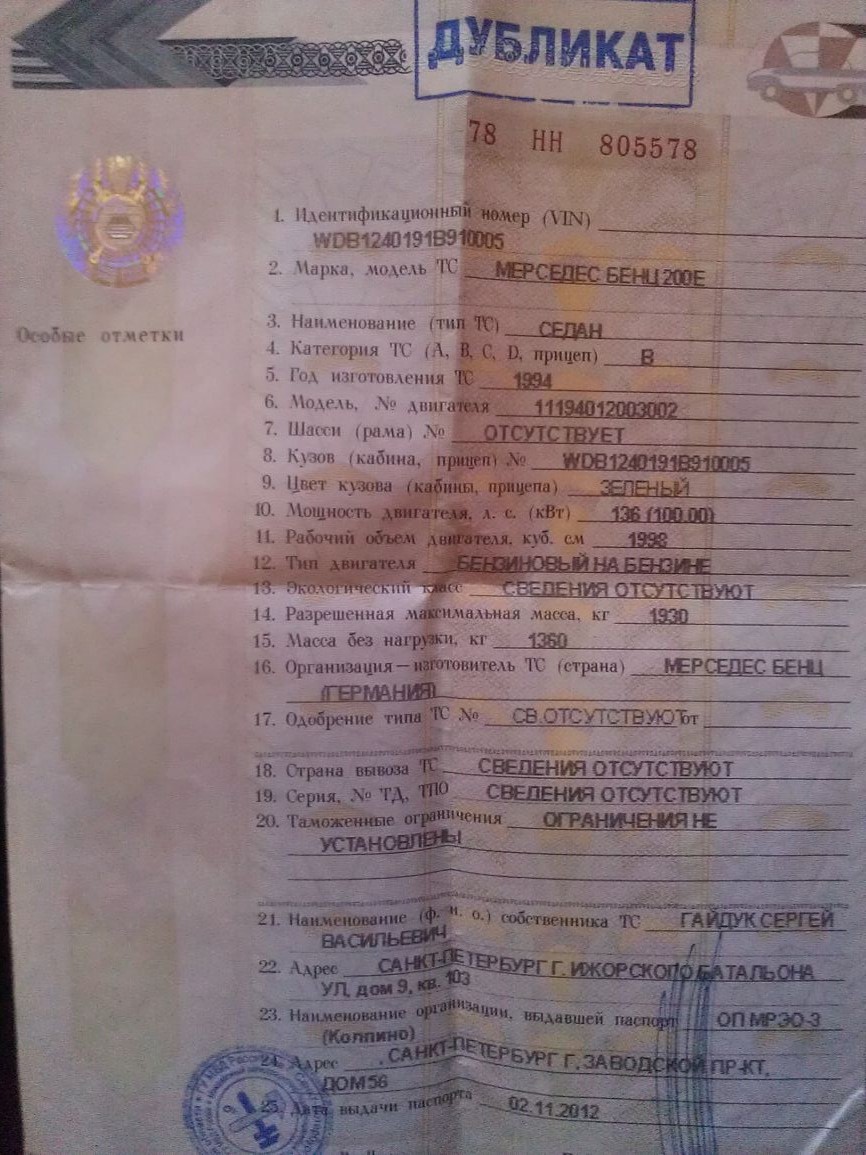 ДУБЛИКАТ
78 НН 805578
1. Идентификационный номер (VIN)
WDB1240191B910005
2. Марка, модель ТС МЕРСЕДЕС БЕНЦ 200Е
Особые отметки
3. Наименование (тип ТС) СЕДАН
4. Категория ТС (А, В, С, D, прицеп) В
5. Год изготовления ТС 1994
6. Модель, № двигателя 11194012003002
7. Шасси (рама) № ОТСУТСТВУЕТ
8. Кузов (кабина, прицеп) № WDB1240191B910005
9. Цвет кузова (кабины, прицепа) ЗЕЛЕНЫЙ
10. Мощность двигателя, л. с. (кВт) 136 (100.00)
11. Рабочий объем двигателя, куб. см 1998
12. Тип двигателя БЕНЗИНОВЫЙ НА БЕНЗИНЕ
13. Экологический класс СВЕДЕНИЯ ОТСУТСТВУЮТ
14. Разрешенная максимальная масса, кг 1930
15. Масса без нагрузки, кг 1360
16. Организация – изготовитель ТС (страна) МЕРСЕДЕС БЕНЦ
(ГЕРМАНИЯ)
17. Одобрение типа ТС № СВ.ОТСУТСТВУЮТ от
18. Страна вывоза ТС СВЕДЕНИЯ ОТСУТСТВУЮТ
19. Серия, № ТД, ТПО СВЕДЕНИЯ ОТСУТСТВУЮТ
20. Таможенные ограничения ОГРАНИЧЕНИЯ НЕ
УСТАНОВЛЕНЫ
21. Наименование (ф. и. о.) собственника ТС ГАЙДУК СЕРГЕЙ
ВАСИЛЬЕВИЧ
22. Адрес САНКТ-ПЕТЕРБУРГ Г. ИЖОРСКОГО БАТАЛЬОНА
УЛ, дом 9, кв. 103
23. Наименование организации, выдавшей паспорт ОП МРЭО-3
(Колпино)
24. Адрес САНКТ-ПЕТЕРБУРГ Г, ЗАВОДСКОЙ ПР-КТ,
ДОМ 56
25. Дата выдачи паспорта 02.11.2012